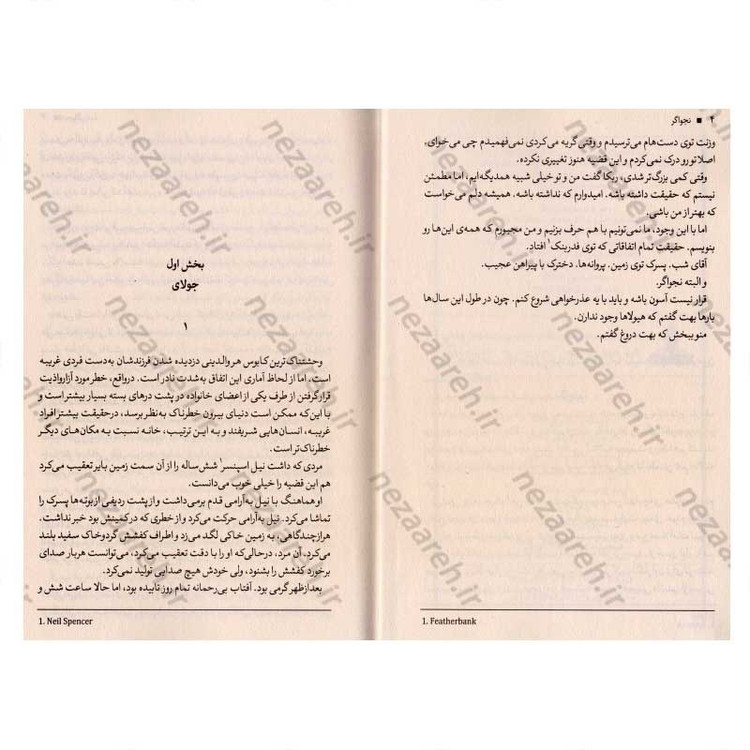 ۴ ■ نجواگر
وزنت توی دست‌هام می‌ترسیدم و وقتی گریه می‌کردی نمی‌فهمیدم چی می‌خوای،
اصلا تو رو درک نمی‌کردم و این قضیه هنوز تغییری نکرده.
وقتی کمی بزرگ‌تر شدی، ربکا گفت من و تو خیلی شبیه همدیگه‌ایم، اما مطمئن
نیستم که حقیقت داشته باشه. امیدوارم که نداشته باشه. همیشه دلم می‌خواست
که بهتر از من باشی.
اما با این وجود، ما نمی‌تونیم با هم حرف بزنیم و من مجبورم که همه‌ی این‌ها رو
بنویسم. حقیقت تمام اتفاقاتی که توی فدربنک۱ افتاد.
آقای شب. پسرک توی زمین. پروانه‌ها. دخترک با پیراهن عجیب.
و البته نجواگر.
قرار نیست آسون باشه و باید با یه عذرخواهی شروع کنم. چون در طول این سال‌ها
بارها بهت گفتم که هیولاها وجود ندارن.
منو ببخش که بهت دروغ گفتم.
1. Featherbank
بخش اول
جولای
۱
وحشتناک‌ترین کابوس هر والدینی دزدیده شدن فرزندشان به‌دست فردی غریبه
است. اما از لحاظ آماری این اتفاق به‌شدت نادر است. درواقع، خطر مورد آزار و اذیت
قرار گرفتن از طرف یکی از اعضای خانواده در پشت درهای بسته بسیار بیشتر است و
با این‌که ممکن است دنیای بیرون خطرناک به‌نظر برسد، درحقیقت بیشتر افراد
غریبه، انسان‌هایی شریفند و به این ترتیب، خانه نسبت به مکان‌های دیگر
خطرناک‌تر است.
مردی که داشت نیل اسپنسر۱ شش‌ساله را از آن سمت زمین بایر تعقیب می‌کرد
هم این قضیه را خیلی خوب می‌دانست.
او هماهنگ با نیل به‌آرامی قدم برمی‌داشت و از پشت ردیفی از بوته‌ها پسرک را
تماشا می‌کرد. نیل به‌آرامی حرکت می‌کرد و از خطری که در کمینش بود خبر نداشت.
هرازچندگاهی، به زمین خاکی لگد می‌زد و اطراف کفشش گردوخاک سفید بلند
می‌کرد. آن مرد، درحالی‌که او را با دقت تعقیب می‌کرد، می‌توانست هربار صدای
برخورد کفشش را بشنود، ولی خودش هیچ صدایی تولید نمی‌کرد.
بعدازظهر گرمی بود. آفتاب بی‌رحمانه تمام روز تابیده بود، اما حالا ساعت شش و
1. Neil Spencer
nezaareh.ir
nezaareh.ir
nezaareh.ir
nezaareh.ir
nezaareh.ir
nezaareh.ir
nezaareh.ir
nezaareh.ir
nezaareh.ir